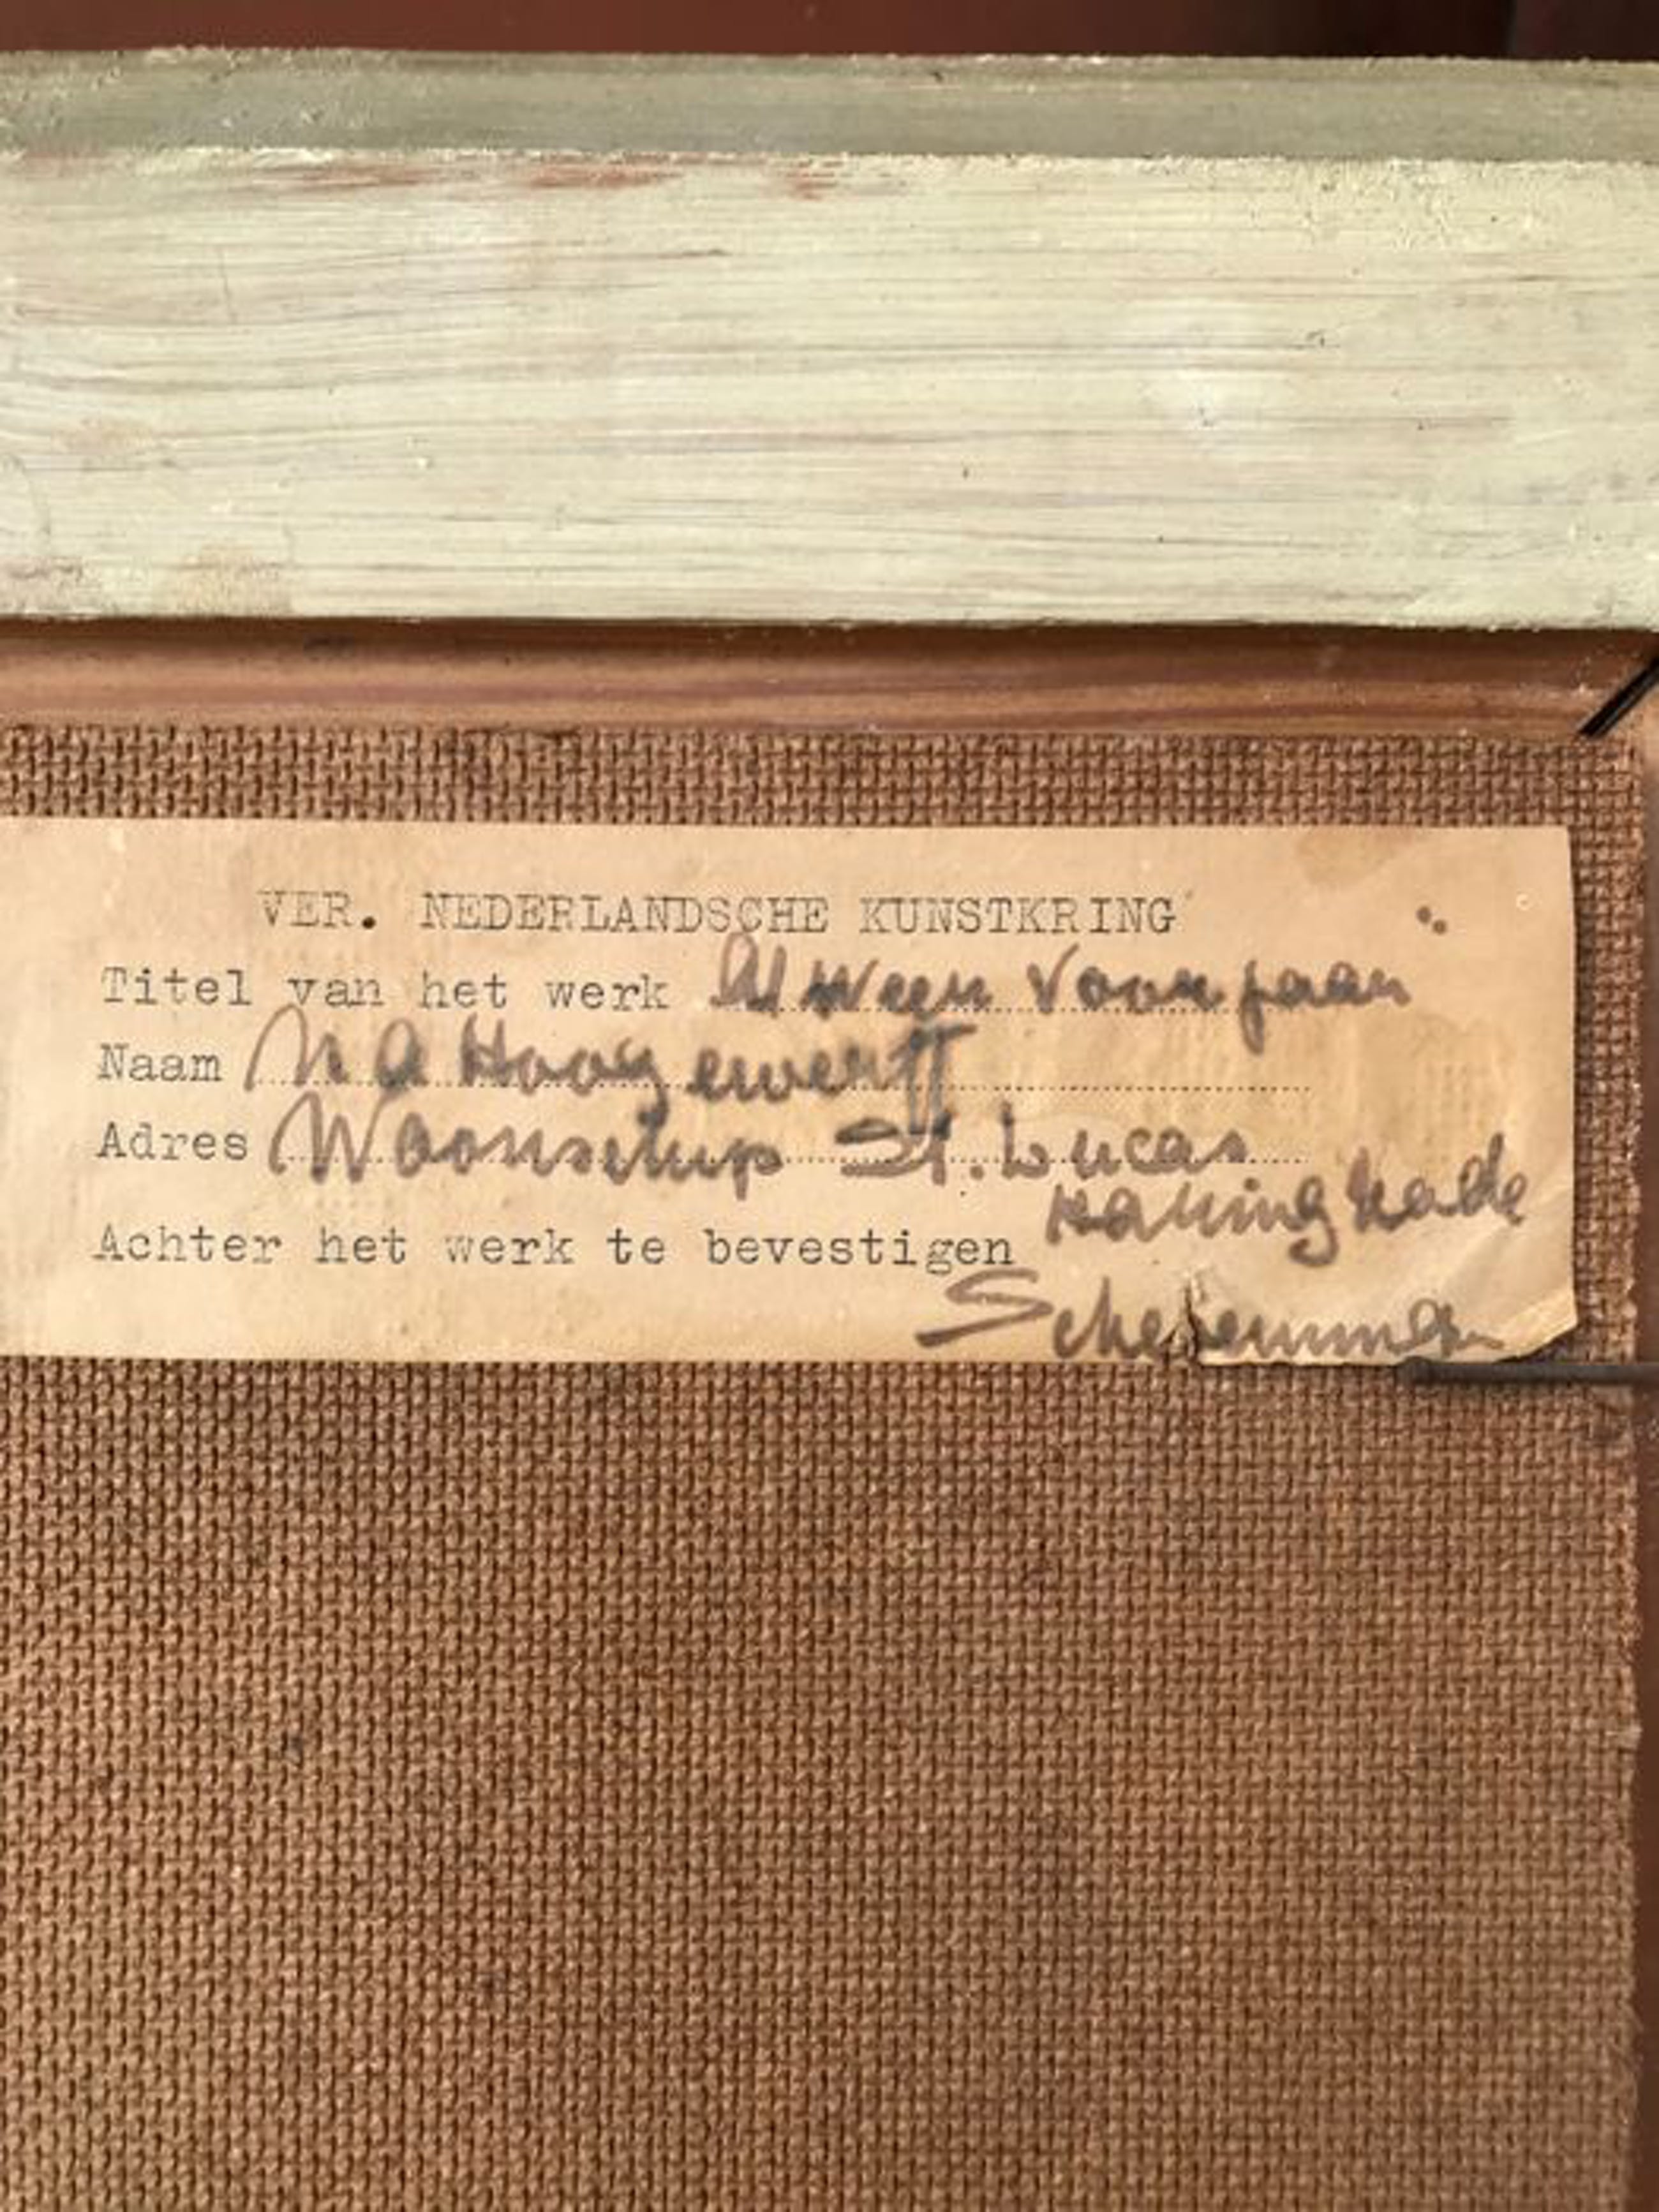 VER. NEDERLANDSCHE KUNSTKRING
Titel van het werk Al Weer Voorjaar
Naam N A Hoogewerff
Adres Woonschip St. Lucas
Haringkade
Achter het werk te bevestigen
Scheveningen